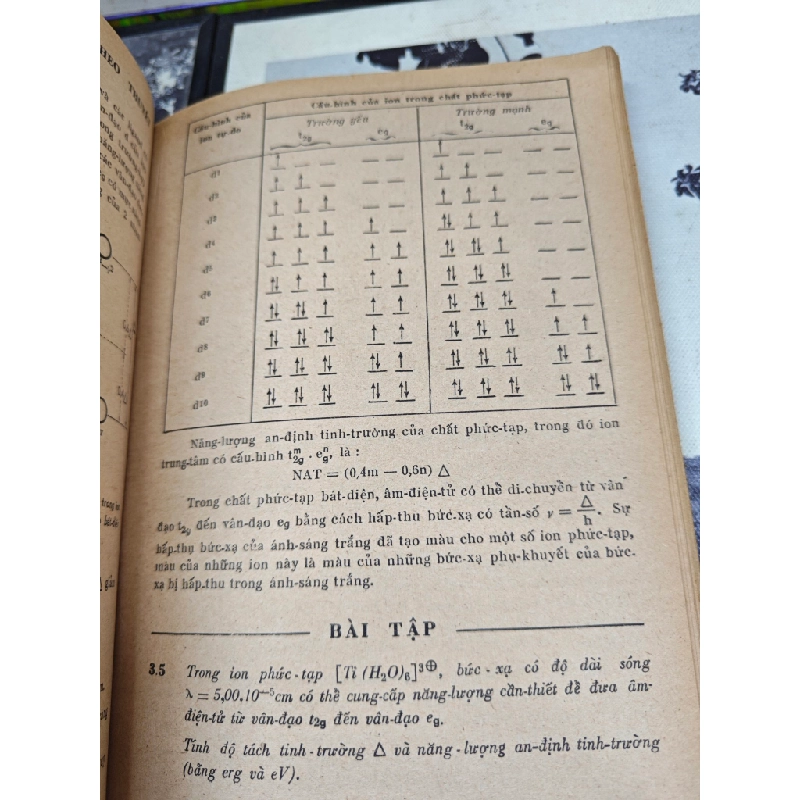 HEO TRƯỜ
Cấu-hình của ion trong chất phức-tạp
Cấu-hình của
ion tự-do
Trường yếu
Trường mạnh
t2g
eg
t2g
eg
d1
d2
d3
d4
d5
d6
d7
d8
d9
d10
Năng-lượng an-định tinh-trường của chất phức-tạp, trong đó ion
trung-tâm có cấu-hình t2g^m . eg^n, là :
NAT = (0,4m — 0,6n) Δ
Trong chất phức-tạp bát-diện, âm-điện-tử có thể di-chuyển từ vân
đạo t2g đến vân-đạo eg bằng cách hấp-thu bức-xạ có tần-số ν = Δ/h. Sự
hấp-thụ bức-xạ của ánh-sáng trắng đã tạo màu cho một số ion phức-tạp,
màu của những ion này là màu của những bức-xạ phụ-khuyết của bức-
xạ bị hấp-thu trong ánh-sáng trắng.
BÀI TẬP
3.5 Trong ion phức-tạp [Ti (H2O)6]3⊕, bức-xạ có độ dài sóng
λ = 5,00.10^-5cm có thể cung-cấp năng-lượng cần-thiết để đưa âm-
điện-tử từ vân-đạo t2g đến vân-đạo eg.
Tính độ tách tinh-trường Δ và năng-lượng an-định tinh-trường
(bằng erg và eV).